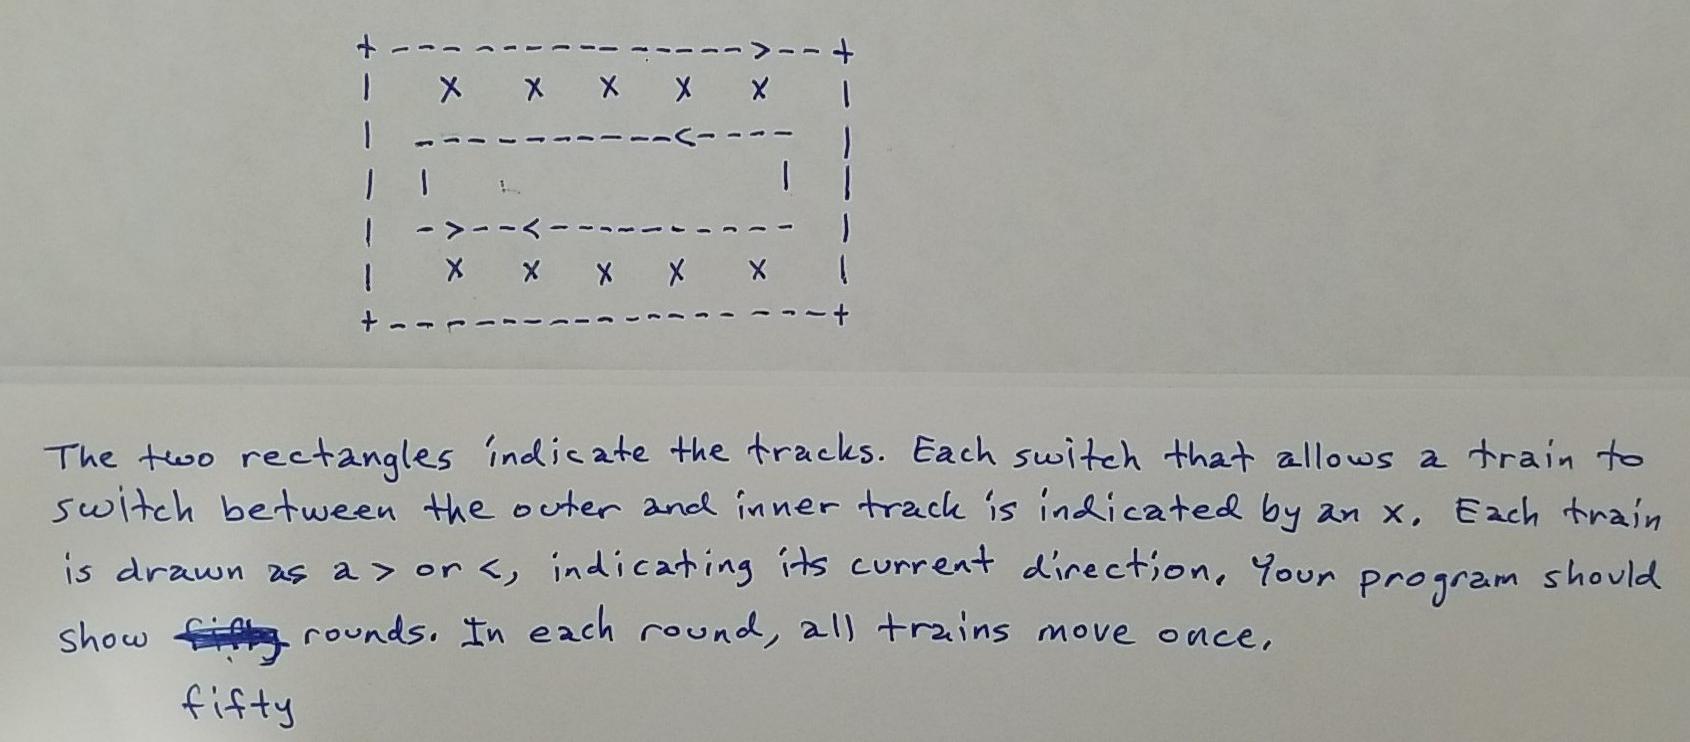 + - - - - - - - - - - - - - - > - - +
| x x x x x |
| - - - - - - - - - - < - - - - |
| | | |
| - > - - < - - - - - - - - - - |
| x x x x x |
+ - - - - - - - - - - - - - - - - - +
The two rectangles indicate the tracks. Each switch that allows a train to
switch between the outer and inner track is indicated by an x. Each train
is drawn as a > or <, indicating its current direction. Your program should
show rounds. In each round, all trains move once.
fifty